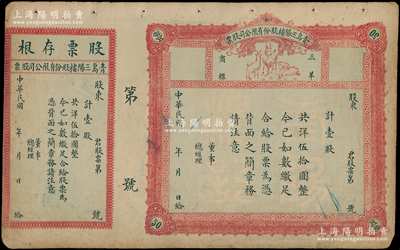 上海陽明拍賣
股票存根
青島三陽樓股份有限公司股票
股東 君股票第 號
計壹股
共洋伍拾圓整
今已如數繳足合給股票為
憑背面之簡章務請注意
董事
總經理
中華民國 年 月 日給
第 號
青島三陽樓股份有限公司股票
三羊
商標
50
50
股東 君股票第 號
計壹股
共洋伍拾圓整
今已如數繳足
合給股票為憑
背面之簡章務
請注意
董事
總經理
中華民國 年 月 日給